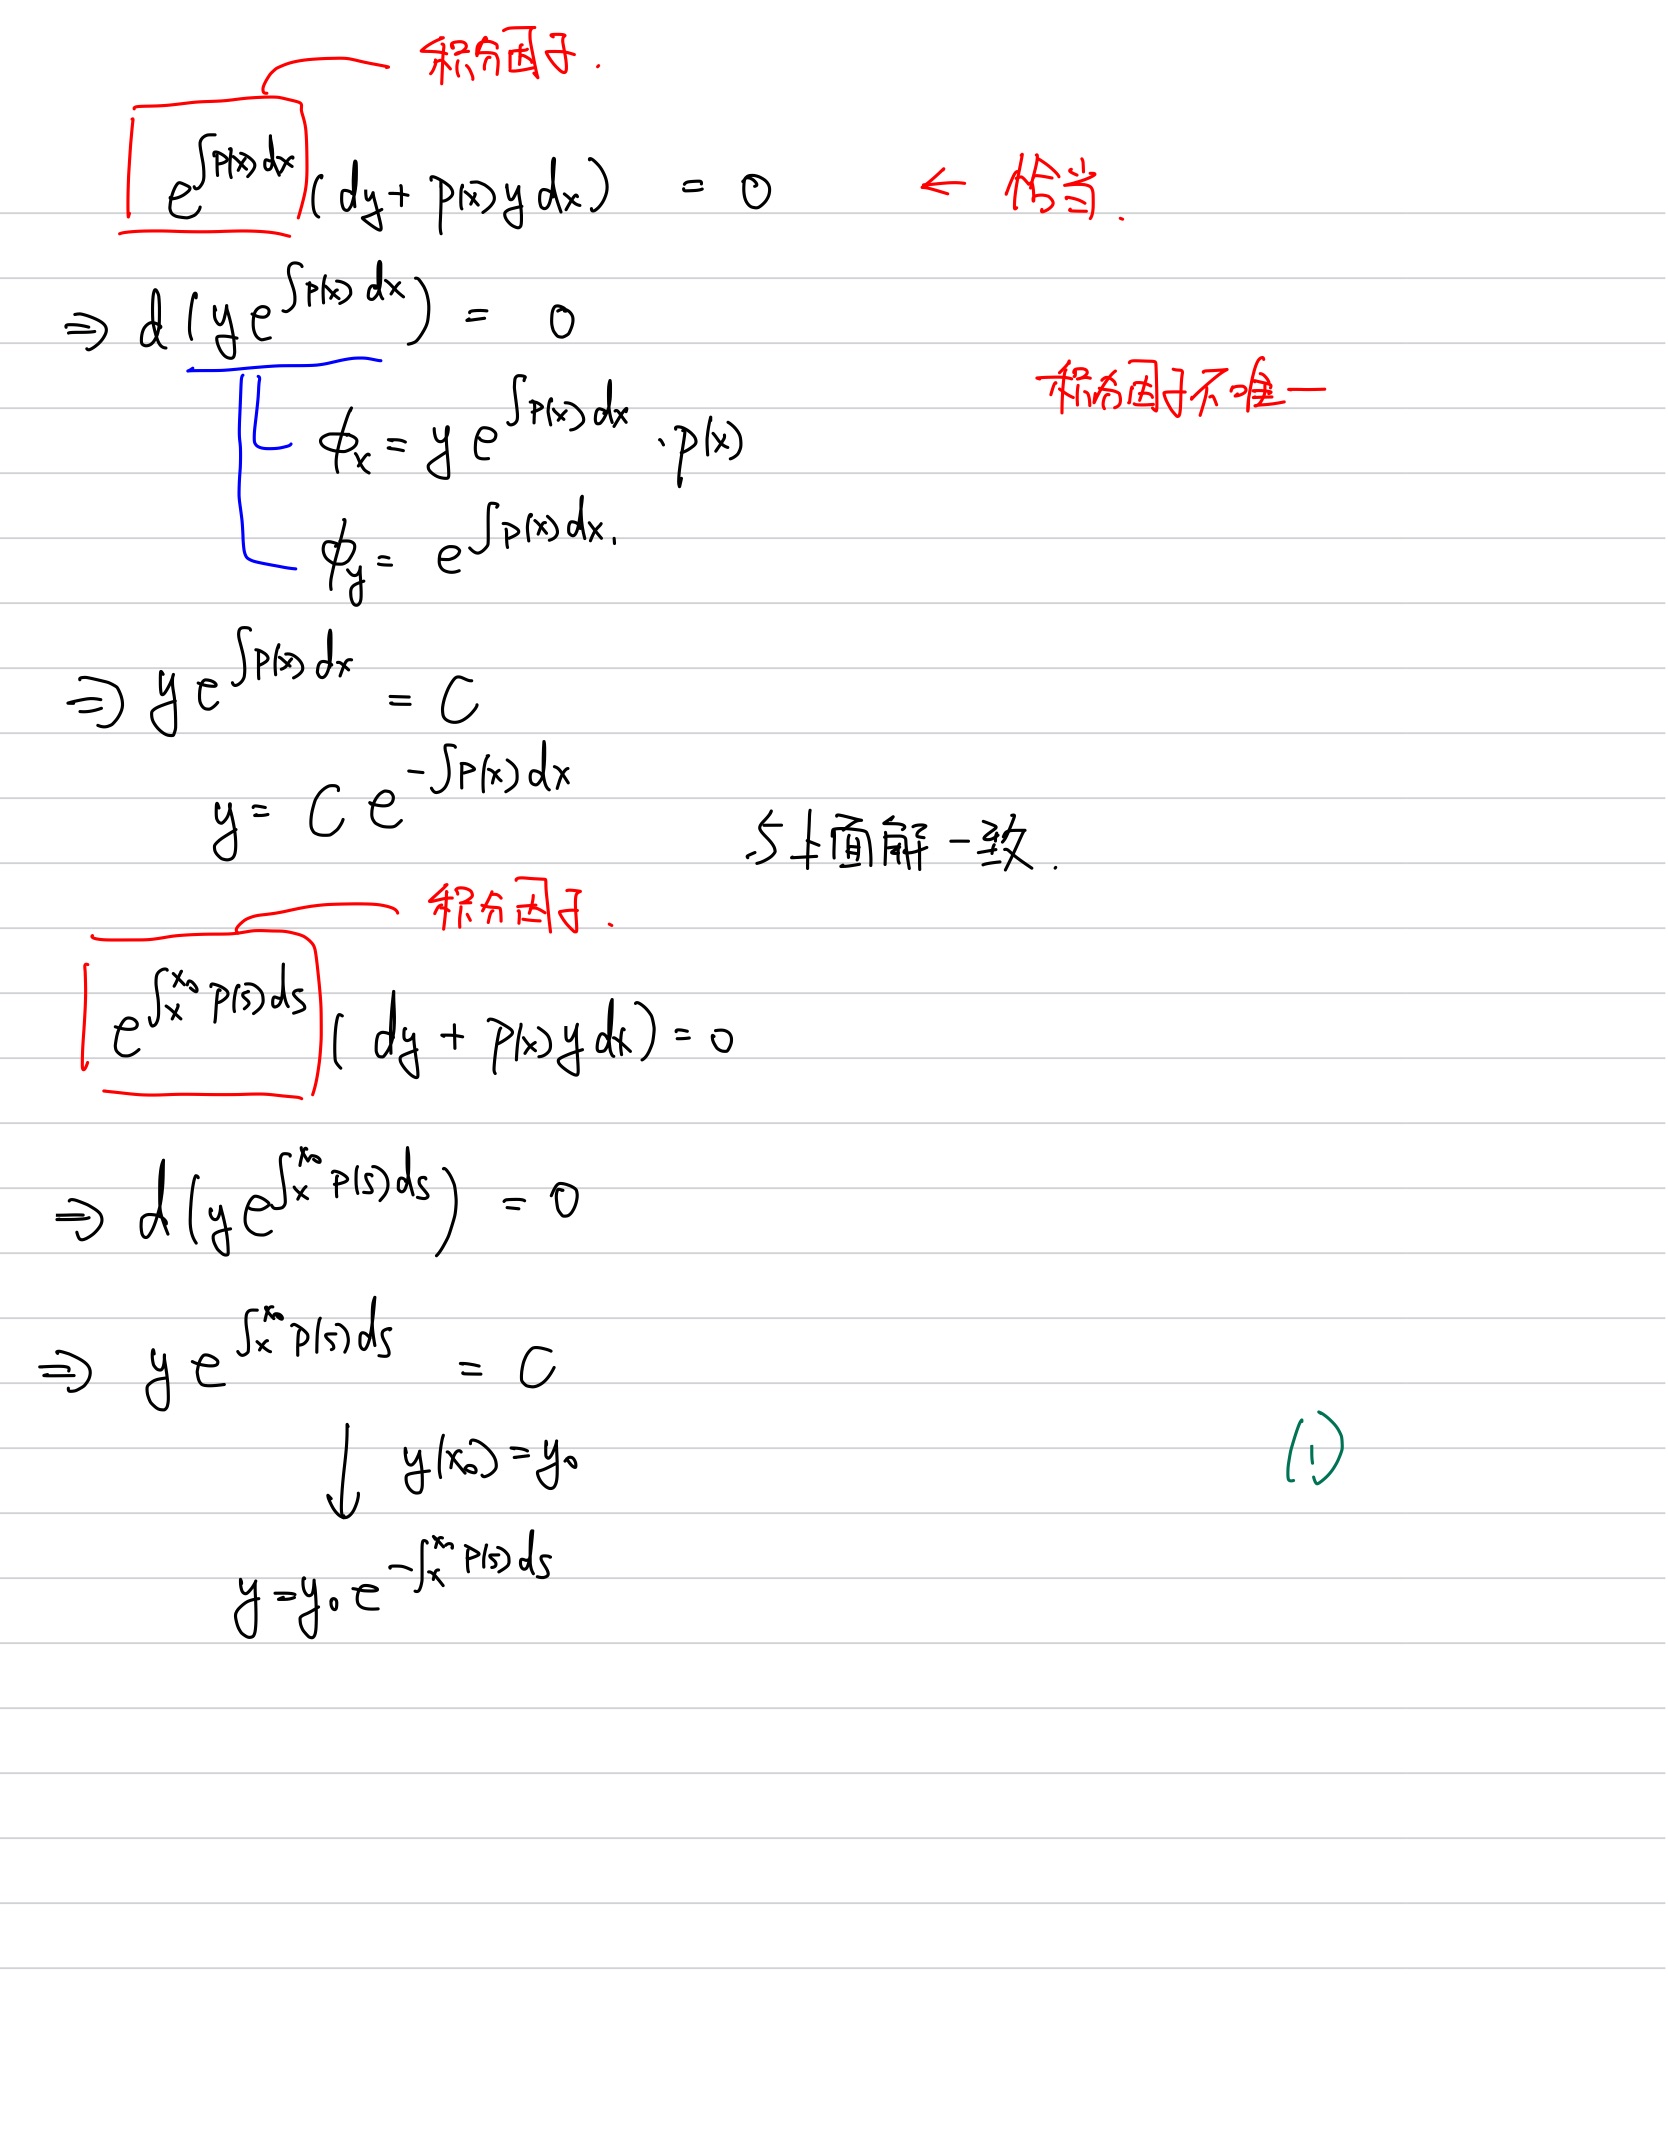 积分因子.
e^{∫p(x)dx} (dy + p(x)y dx) = 0 ← 恰当.
⇒ d(y e^{∫p(x)dx}) = 0
积分因子不唯一
ϕ_x = y e^{∫p(x)dx} · p(x)
ϕ_y = e^{∫p(x)dx}.
⇒ y e^{∫p(x)dx} = C
y = C e^{-∫p(x)dx}
与上面解一致.
积分因子.
e^{∫_x^{x_0} p(s)ds} (dy + p(x)y dx) = 0
⇒ d(y e^{∫_x^{x_0} p(s)ds}) = 0
⇒ y e^{∫_x^{x_0} p(s)ds} = C
↓ y(x_0) = y_0
(1)
y = y_0 e^{-∫_x^{x_0} p(s)ds}